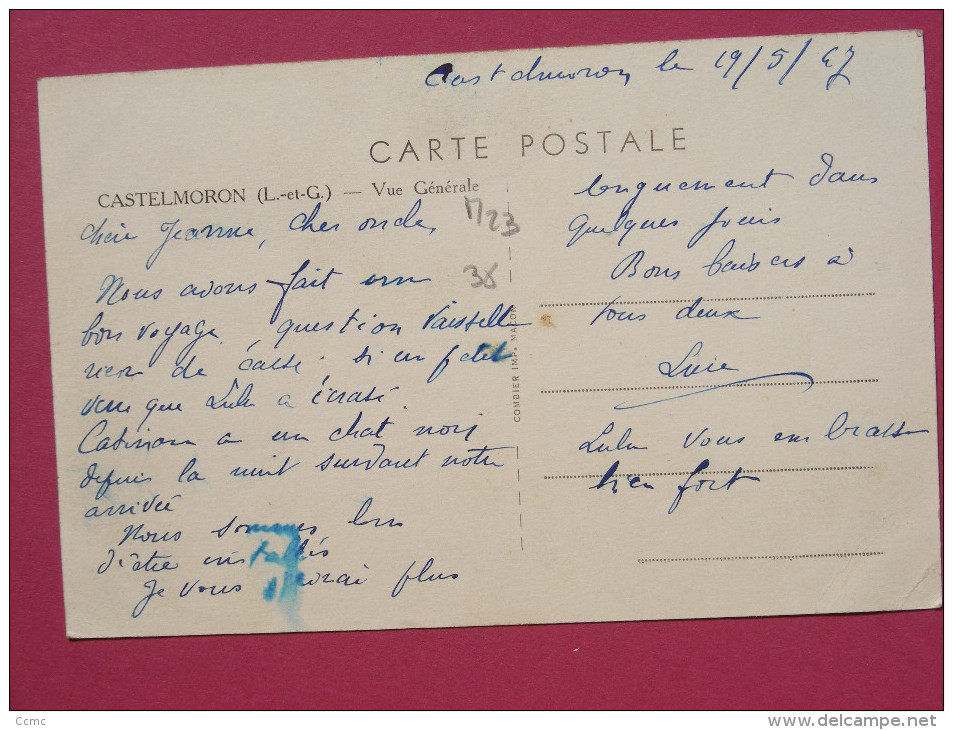 Castelmoron le 19/5/47
CARTE POSTALE
CASTELMORON (L.-et-G.) — Vue Générale
chère Jeanne, cher oncle,
Nous avons fait un
bon voyage, question vaisselle
rien de cassé, si un petit
verre que Lulu a écrasé.
a un chat noir
depuis la nuit suivant notre
arrivée
Nous sommes
d'être installés
Je vous écrirai plus
M23
38
COMBIER IMP. MACON
longuement dans
quelques jours
Bons baisers à
tous deux
Lulu vous embrasse
bien fort
Ccmc
delcampe.net